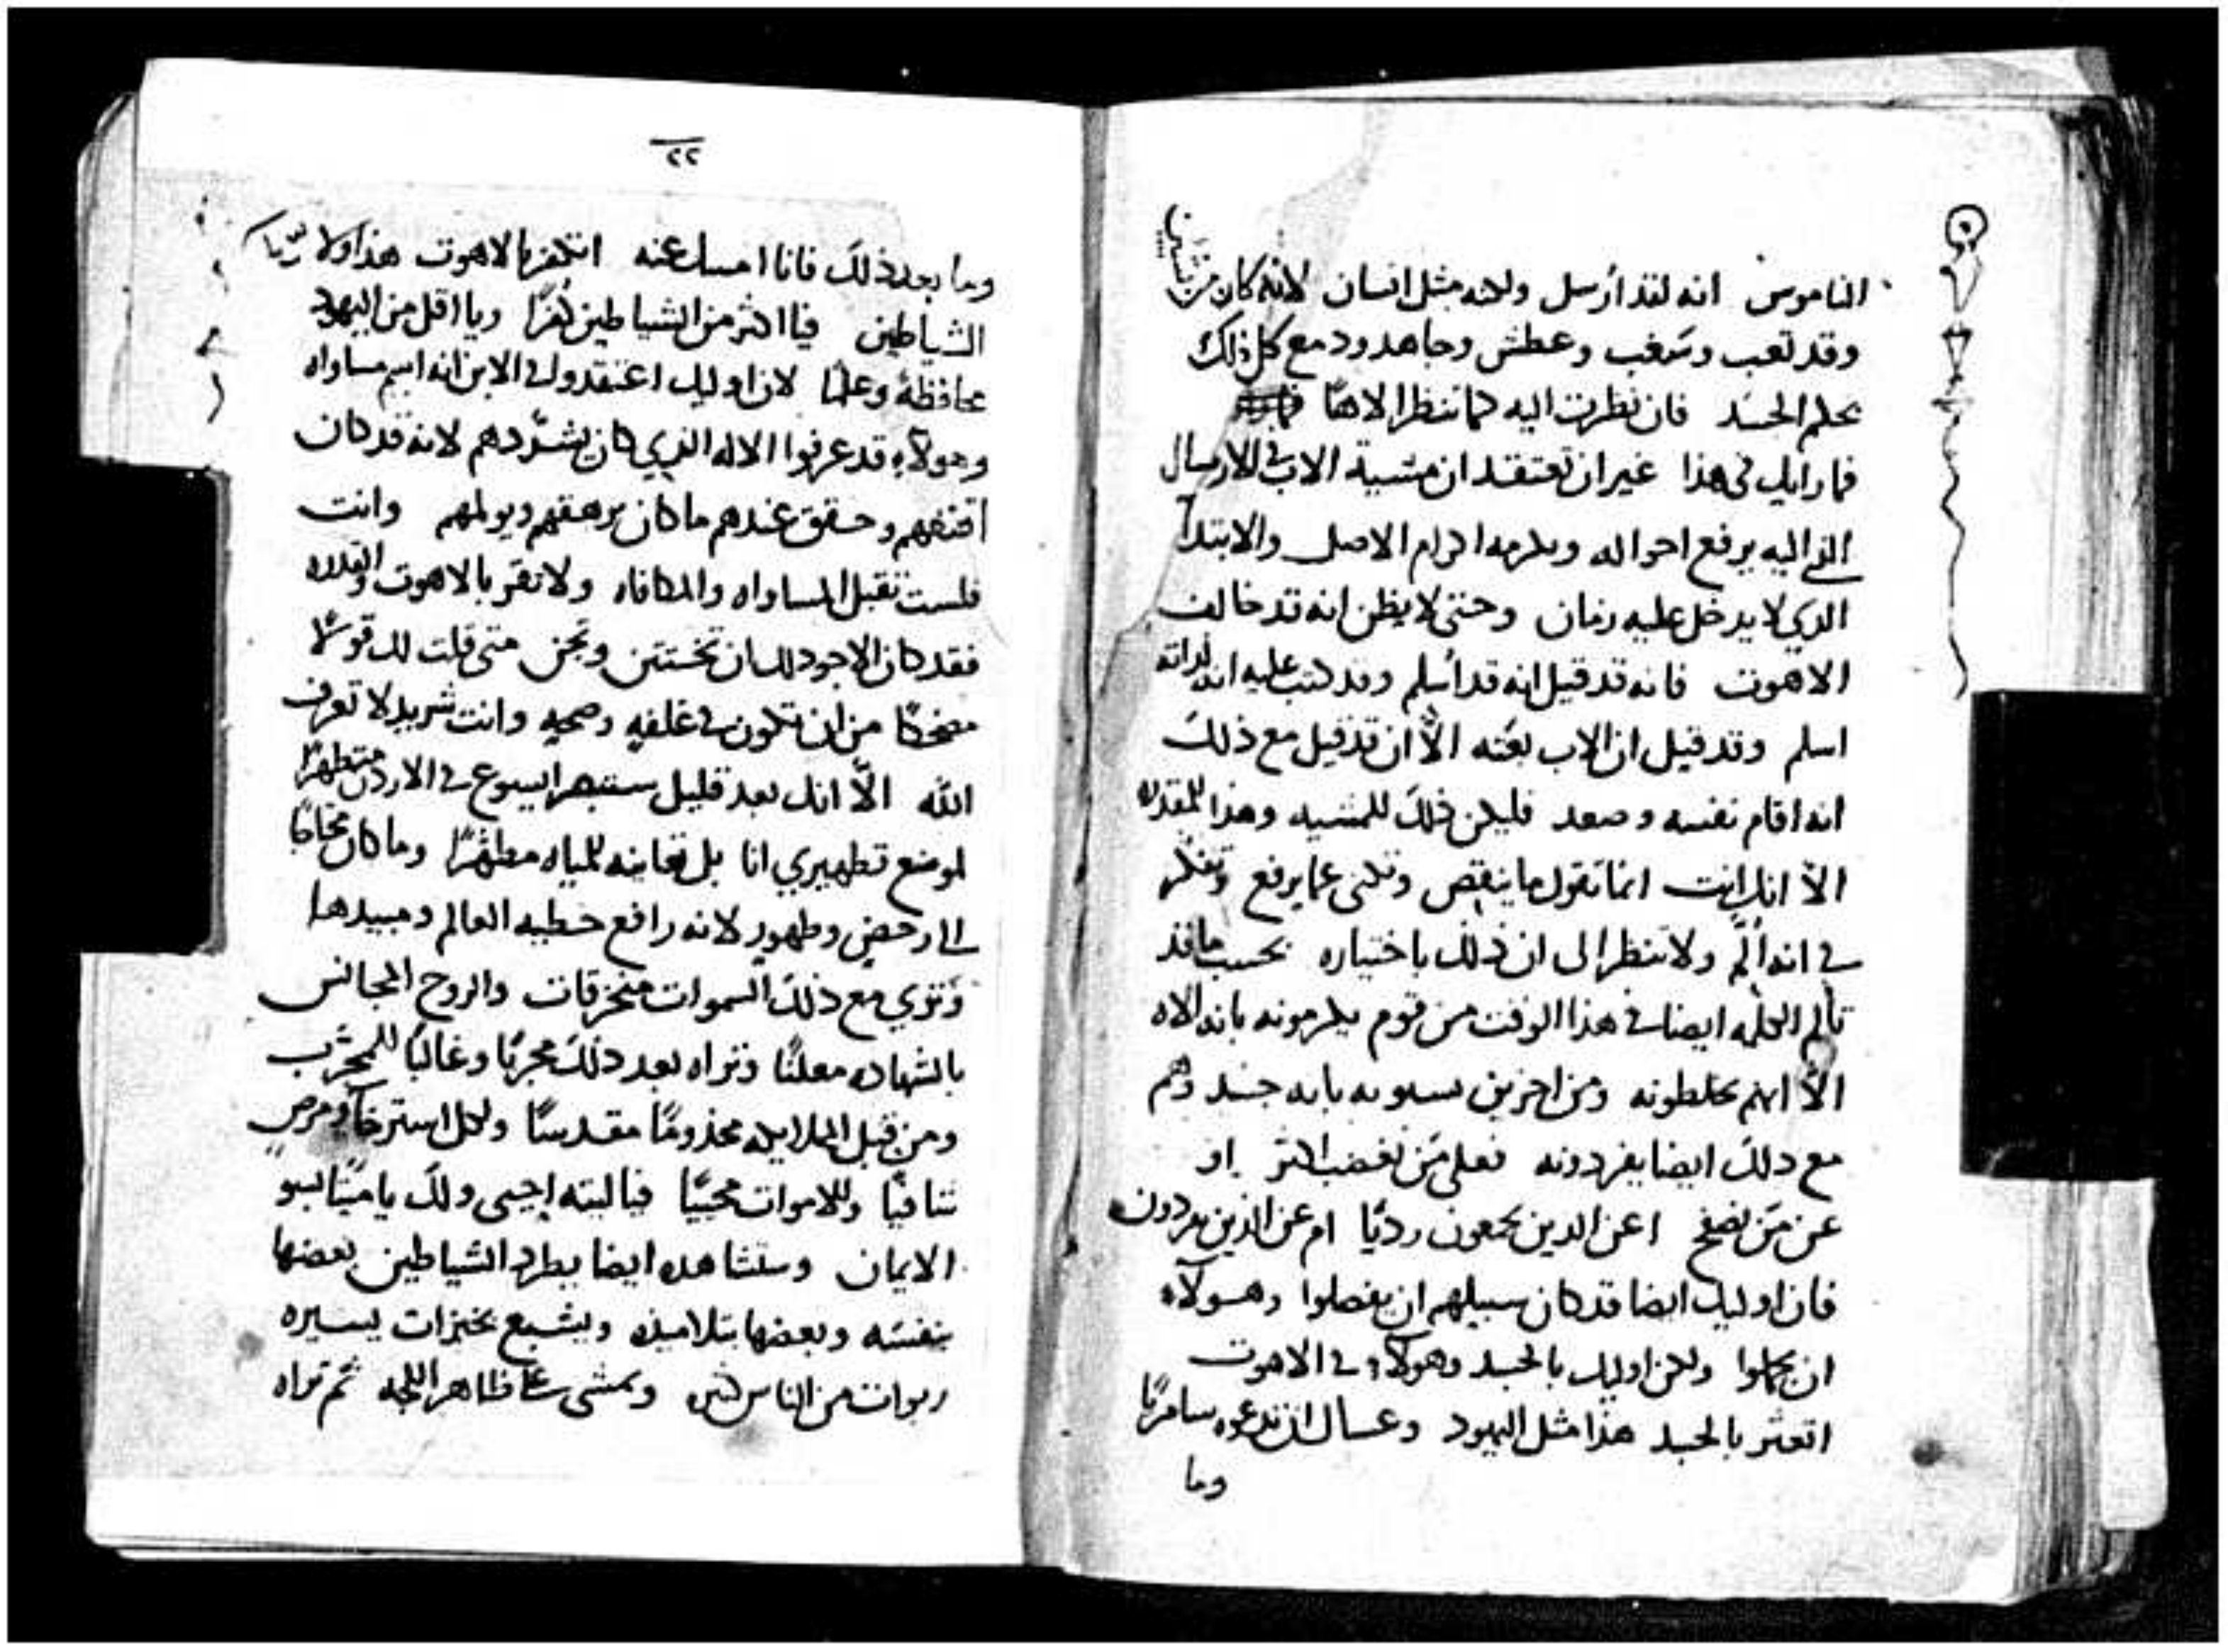 الناموس انه لقد أرسل ولكنه مثل انسان لانه كان مركبًا من شيئين
وقد تعب وسغب وعطش وجاهد ودمع كل ذلك
بحكم الجسد فان نظرت اليه كما تنظر الاهًا
فما رايك في هذا غير ان تعتقد ان مشية الاب في الارسال
الذي اليه يرفع احواله ويكرمه اكرام الاصل والابتدا
الذي لا يدخل عليه زمان وحتى لا يظن انه قد خالف
الاهوت فانه قد قيل انه قد أسلم وقد كتب عليه انه لذاته
اسلم وقد قيل ان الاب بعثه الّا ان قد قيل مع ذلك
انه اقام نفسه وصعد فليكن ذلك للمشيه وهذا للمقدره
الّا انك انت انما تقول ما ينقص وتكني عما يرفع وتفكر
في انه ألم ولا تنظر الى ان ذلك باختياره بحسب ما قد
تألم الكلمه ايضا في هذا الوقت من قوم يكرمونه بانه الاه
الّا انهم يخلطونه ومن اخرين بانه جسد وهم
مع ذلك ايضا يفردونه فعلى مَن نغضب اكثر او
عن مَن نصفح اعن الذين يجمعون رديًا ام عن الذين يفردون
فان اوليك ايضا قد كان سبيلهم ان يفصلوا وهولآء
ان يجملوا ولكن اوليك بالجسد وهولآء في الاهوت
اتعثر بالجسد هذا مثل اليهود وعساك ان تدعوه سامريًا
وما
٢٢
وما بعد ذلك فانا امسك عنه اتكفر بالاهوت هذا ولا
الشياطين فيا اكثر من الشياطين كفرًا ويا اقل من اليهود
محافظةً وعلمًا لان اوليك اعتقدوا في الابن انه اسم مساواه
وهولآء قد عرفوا الاله الذي كان يشرّدهم لانه قد كان
اقنعهم وحقق عندهم ما كان يرهقهم ويولمهم وانت
فلست تقبل المساواه والمكافاه ولا تقر بالاهوت والقدره
فقد كان الاجود لك ان تختتن وتجن متى قلت لك قولًا
مضحكًا من ان تكون في غلفه وصحيه وانت شريد لا تعرف
الله الّا انك بعد قليل ستبصر ايسوع في الاردن متطهرًا
لموضع تطهيري انا بل تعاينه للمياه مطهّرًا وما كان محتاجًا
الى رحض وطهور لانه رافع خطيه العالم ومبيدها
وترى مع ذلك السموات منخرقات والروح المجانس
بالشهاده معلنًا وتراه بعد ذلك مجربًا وغالبًا للمجرّب
ومن قبل الملايكه مخدومًا مقدسًا ولكل استرخآ ومرض
شافيًا وللاموات محييًا فياليته احيى ولك يا ميتًا بسو
الايمان وستشاهده ايضا يطرد الشياطين بعضها
بنفسه وبعضها بتلاميذه ويشبع بخبزات يسيره
ربوات من الناس كثيره ويمشي على ظاهر اللجه ثم تراه